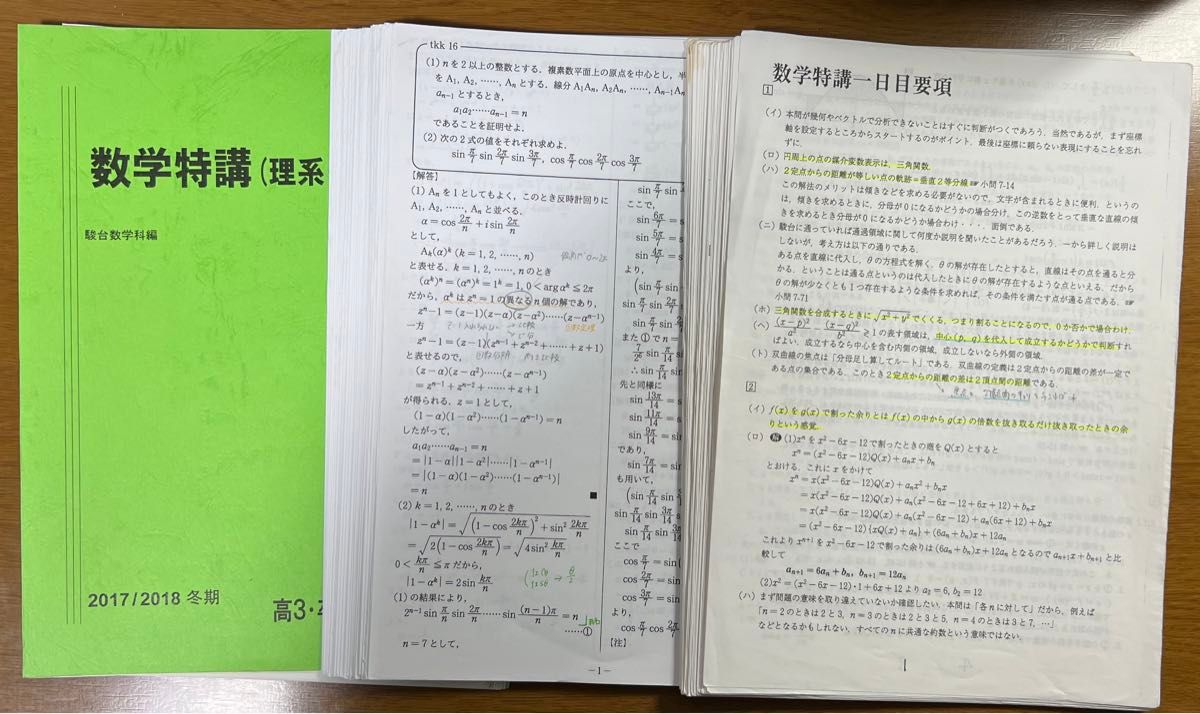 数学特講(理系
駿台数学科編
2017/2018 冬期
高3・
tkk 16
(1) nを2以上の整数とする．複素数平面上の原点を中心とし，半
をA₁, A₂, ……, Aₙとする．線分A₁Aₙ, A₂Aₙ, ……, Aₙ₋₁A
aₙ₋₁とするとき，
a₁a₂……aₙ₋₁ = n
であることを証明せよ．
(2) 次の2式の値をそれぞれ求めよ．
sin π/7 sin 2π/7 sin 3π/7, cos π/7 cos 2π/7 cos 3π/7
【解答】
(1) Aₙを1としてもよく，このとき反時計回りに
A₁, A₂, ……, Aₙと並べる．
α = cos 2π/n + i sin 2π/n
として，
Aₖ(α)ᵏ (k = 1, 2, ……, n)
と表せる．k = 1, 2, ……, nのとき
(αᵏ)ⁿ = (αⁿ)ᵏ = 1ᵏ = 1, 0 < arg αᵏ ≦ 2π
だから，αᵏはzⁿ = 1の異なるn個の解であり，
zⁿ − 1 = (z − 1)(z − α)(z − α²)……(z − αⁿ⁻¹)
一方
zⁿ − 1 = (z − 1)(zⁿ⁻¹ + zⁿ⁻² + …… + z + 1)
と表せるので，
(z − α)(z − α²)……(z − αⁿ⁻¹)
= zⁿ⁻¹ + zⁿ⁻² + …… + z + 1
が得られる．z = 1として，
(1 − α)(1 − α²)……(1 − αⁿ⁻¹) = n
したがって，
a₁a₂……aₙ₋₁ = n
= |1 − α||1 − α²|……|1 − αⁿ⁻¹|
= |(1 − α)(1 − α²)……(1 − αⁿ⁻¹)|
= n
■
(2) k = 1, 2, ……, nのとき
|1 − αᵏ| = √((1 − cos 2kπ/n)² + sin² 2kπ/n)
= √(2(1 − cos 2kπ/n)) = √(4sin² kπ/n)
0 < kπ/n ≦ πだから，
|1 − αᵏ| = 2sin kπ/n
(1)の結果により，
2ⁿ⁻¹ sin π/n sin 2π/n …… sin (n−1)π/n = n
……①
n = 7として，
sin π/7 sin
ここで，
sin 6π/7 = s
sin 5π/7 =
sin 4π/7 =
より，
(sin π/7 sin
sin π/7 sin 2π/7
また①でn =
7/2⁶ sin π/14
∴ sin π/14
先と同様に
sin 13π/14 = s
sin 11π/14 =
sin 9π/14 =
であり，
sin 7π/14 =
も用いて，
(sin π/14 sin
sin π/14 sin 3π/14
sin π/14 sin 3π/14
ここで
cos π/7 = sin
cos 2π/7 =
cos 3π/7 =
より，
cos π/7 cos 2π/7
【注】
−1−
数学特講一日目要項
1
(イ) 本問が幾何やベクトルで分析できないことはすぐに判断がつくであろう．当然であるが，まず座標
軸を設定するところからスタートするのがポイント．最後は座標に頼らない表現にすることを忘れ
ずに．
(ロ) 円周上の点の媒介変数表示は，三角関数．
(ハ) 2定点からの距離が等しい点の軌跡=垂直2等分線☞小問7-14
この解法のメリットは傾きなどを求める必要がないので，文字が含まれるときに便利．というの
は，傾きを求めるときに，分母が0になるかどうかの場合分け，この逆数をとって垂直な直線の傾
きを求めるとき分母が0になるかどうか場合わけ・・・．面倒である．
(ニ) 駿台に通っていれば通過領域に関して何度か説明を聞いたことがあるだろう．一から詳しく説明は
しないが，考え方は以下の通りである．
ある点を直線に代入し，θの方程式を解く．θの解が存在したとすると，直線はその点を通ると分
かる．ということは通る点というのは代入したときにθの解が存在するような点といえる．だから
θの解が少なくとも1つ存在するような条件を求めれば，その条件を満たす点が通る点である．☞
小問7-71
(ホ) 三角関数を合成するときに√(x² + y²)でくくる．つまり割ることになるので，0か否かで場合わけ．
(ヘ) (x−p)²/a² − (x−q)²/b² ≧ 1の表す領域は，中心(p, q)を代入して成立するかどうかで判断すれ
ばよい．成立するなら中心を含む内側の領域，成立しないなら外側の領域．
(ト) 双曲線の焦点は「分母足し算してルート」である．双曲線の定義は2定点からの距離の差が一定で
ある点の集合である．このとき2定点からの距離の差は2頂点間の距離である．
2
(イ) f(x)をg(x)で割った余りとはf(x)の中からg(x)の倍数を抜き取るだけ抜き取ったときの余
りという感覚．
(ロ) 解 (1) xⁿをx² − 6x − 12で割ったときの商をQ(x)とすると
xⁿ = (x² − 6x − 12)Q(x) + aₙx + bₙ
とおける．これにxをかけて
xⁿ = x(x² − 6x − 12)Q(x) + aₙx² + bₙx
= x(x² − 6x − 12)Q(x) + aₙ(x² − 6x − 12 + 6x + 12) + bₙx
= x(x² − 6x − 12)Q(x) + aₙ(x² − 6x − 12) + aₙ(6x + 12) + bₙx
= (x² − 6x − 12){xQ(x) + aₙ} + (6aₙ + bₙ)x + 12aₙ
これよりxⁿ⁺¹をx² − 6x − 12で割った余りは(6aₙ + bₙ)x + 12aₙとなるのでaₙ₊₁x + bₙ₊₁と比
較して
aₙ₊₁ = 6aₙ + bₙ, bₙ₊₁ = 12aₙ
(2) x² = (x² − 6x − 12)・1 + 6x + 12よりa₂ = 6, b₂ = 12
(ハ) まず問題の意味を取り違えていないか確認したい．本問は「各nに対して」だから，例えば
「n = 2のときは2と3，n = 3のときは2と3と5，n = 4のときは3と7，…」
などとなるかもしれない．すべてのnに共通な約数という意味ではない．
1